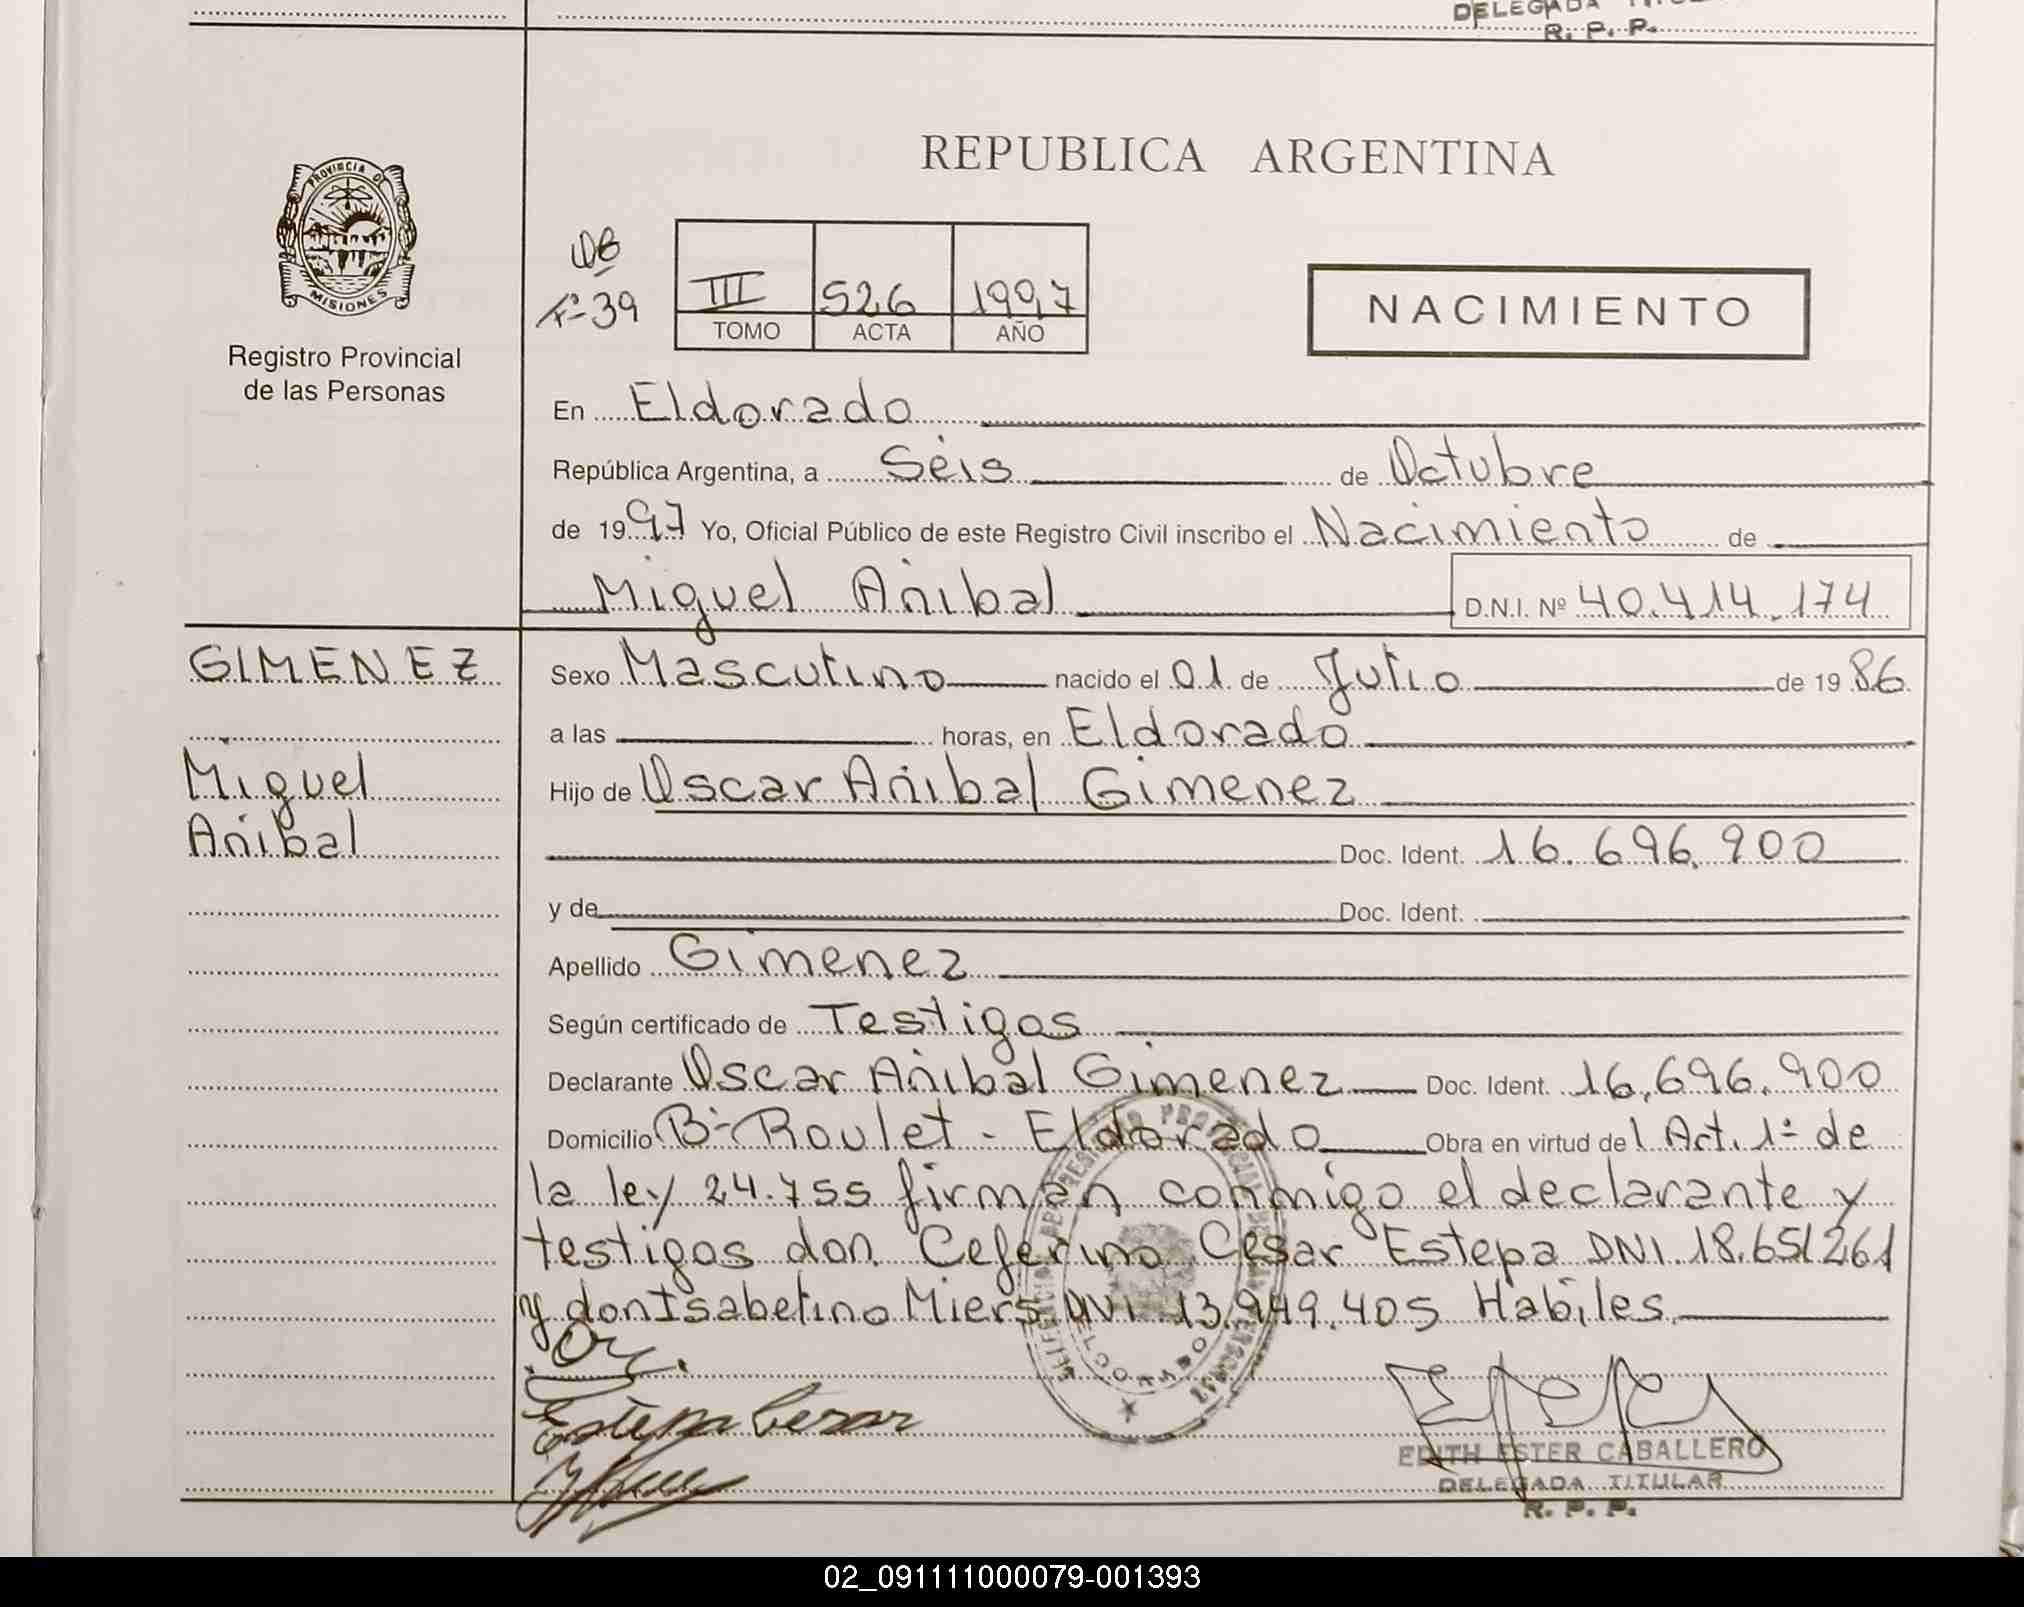 DELEGADA
R. P. P.
REPUBLICA ARGENTINA
PROVINCIA DE
MISIONES
Registro Provincial
de las Personas
Fº 39
III 526 1997
TOMO ACTA AÑO
NACIMIENTO
En Eldorado
República Argentina, a Seis de Octubre
de 1997 Yo, Oficial Público de este Registro Civil inscribo el Nacimiento de
Miguel Anibal D.N.I. Nº 40.414.174
GIMENEZ Sexo Masculino nacido el 01 de Julio de 1986
a las horas, en Eldorado
Miguel Hijo de Oscar Anibal Gimenez
Anibal Doc. Ident. 16.696.900
y de Doc. Ident.
Apellido Gimenez
Según certificado de Testigos
Declarante Oscar Anibal Gimenez Doc. Ident. 16.696.900
Domicilio Bº Roulet - Eldorado Obra en virtud del Art. 1º de
la ley 24.755 firman conmigo el declarante y
testigos don Ceferino Cesar Estepa DNI 18.651261
y don Isabelino Miers DNI 13.949.405 Habiles
Estepa Cesar
EDITH ESTER CABALLERO
DELEGADA TITULAR
R. P. P.
02_091111000079-001393